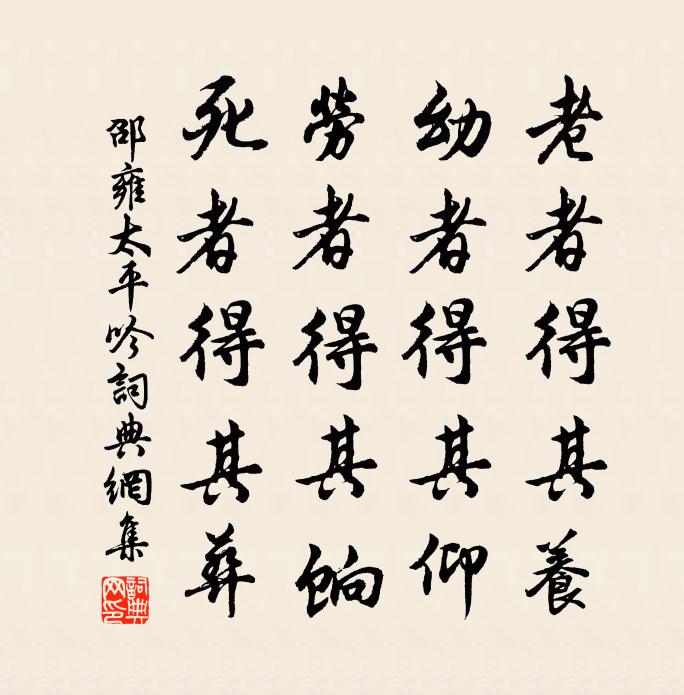 老者得其養
幼者得其仰
勞者得其餉
死者得其葬
邵雍太平吟詞典網集
詞典網印